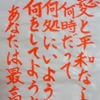 愛と平和な
何時だって
何処にいよう
何をしてよう
あなたは最高